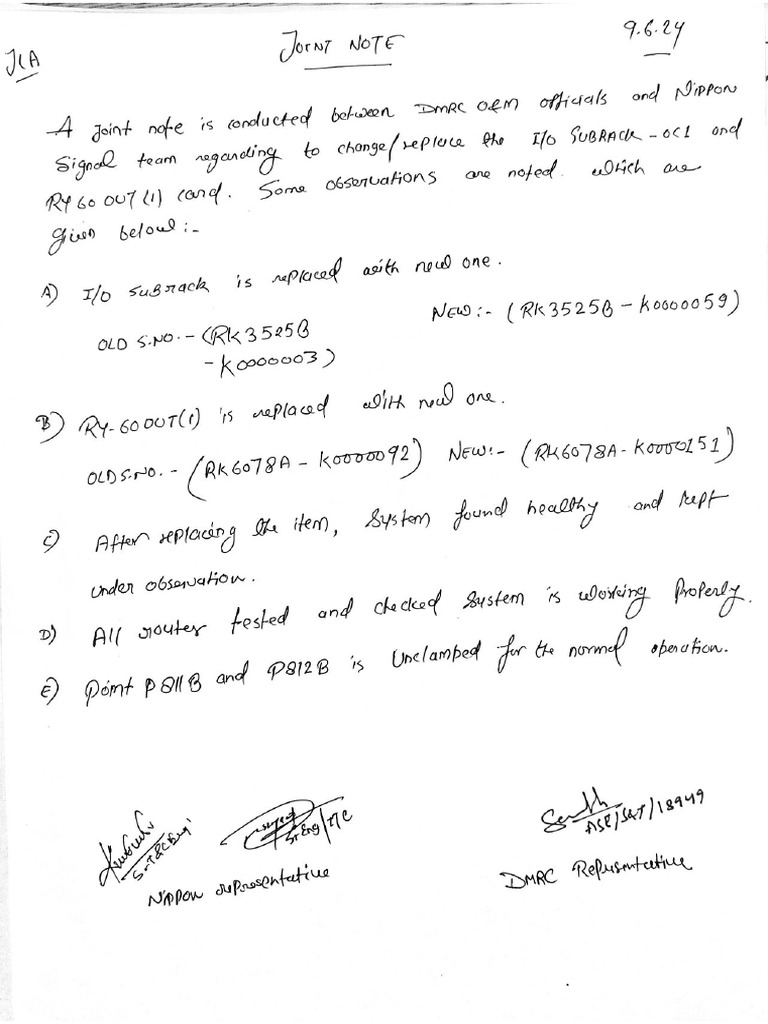 JLA
JOINT NOTE
9.6.24
A Joint note is conducted between DMRC O&M officials and NIPPON
Signal team regarding to change/replace the I/O SUBRACK-OC1 and
RY60 OUT(1) card. Some observations are noted. which are
given below:-
A) I/O SUBRACK is replaced with new one.
OLD S.NO.-(RK3525B
-K0000003)
NEW:- (RK3525B-K0000059)
B) RY-60OUT(1) is replaced with new one.
OLD S.NO. - (RK6078A-K0000092) NEW:- (RK6078A-K0000151)
C) After replacing the item, System found healthy and kept
under observation.
D) All routes tested and checked system is working Properly.
E) Point P811B and P812B is Unclamped for the normal operation.
Sr. Eng/T/C
ASE/S&T/18949
NIPPON representative
DMRC Representative